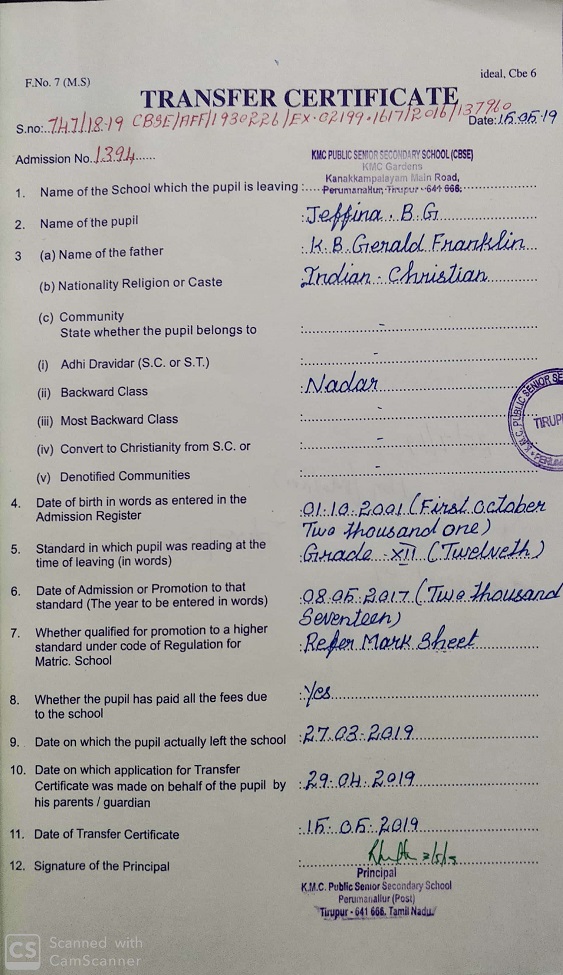 F.No. 7 (M.S)
ideal, Cbe 6
TRANSFER CERTIFICATE
S.no: 747/18-19 CBSE/AFF/1930226/EX-02199-1617/2016/137960 Date: 15.05.19
Admission No. 1394
KMC PUBLIC SENIOR SECONDARY SCHOOL (CBSE)
KMC Gardens
Kanakkampalayam Main Road,
Perumanallur, Tirupur - 641 666.
1. Name of the School which the pupil is leaving :
2. Name of the pupil : Jeffina . B.G
3 (a) Name of the father : K.B. Gerald Franklin
(b) Nationality Religion or Caste : Indian - Christian
(c) Community
State whether the pupil belongs to : -
(i) Adhi Dravidar (S.C. or S.T.) : -
(ii) Backward Class : Nadar
(iii) Most Backward Class : -
(iv) Convert to Christianity from S.C. or : -
(v) Denotified Communities : -
K.M.C. PUBLIC SENIOR SE
TIRUP
4. Date of birth in words as entered in the : 01.10.2001 (First October
Admission Register Two thousand one)
5. Standard in which pupil was reading at the : Grade - XII (Twelveth)
time of leaving (in words)
6. Date of Admission or Promotion to that : 08.05.2017 (Two thousand
standard (The year to be entered in words) Seventeen)
7. Whether qualified for promotion to a higher : Refer Mark Sheet
standard under code of Regulation for
Matric. School
8. Whether the pupil has paid all the fees due : Yes
to the school
9. Date on which the pupil actually left the school : 27.03.2019
10. Date on which application for Transfer
Certificate was made on behalf of the pupil by : 29.04.2019
his parents / guardian
11. Date of Transfer Certificate : 15.05.2019
12. Signature of the Principal :
Principal
K.M.C. Public Senior Secondary School
Perumanallur (Post)
Tirupur - 641 666. Tamil Nadu.
CS Scanned with
CamScanner